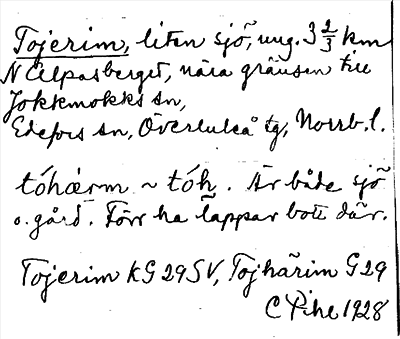 Tojerim, liten sjö, ung. 3 2/3 km
N Celpasberget, nära gränsen till
Jokkmokks sn,
Edefors sn, Överluleå tg, Norrb. l.
tóhærm ~ tóh. Är både sjö
o. gård. Förr ha lappar bott där.
Tojerim KG 29 SV, Tojhärim G 29
C Pihe 1928